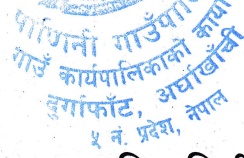 पाणिनी गाउँपा
गाउँ कार्यपालिकाको कार्या
दुर्गाफाँट, अर्घाखाँची
५ नं. प्रदेश, नेपाल